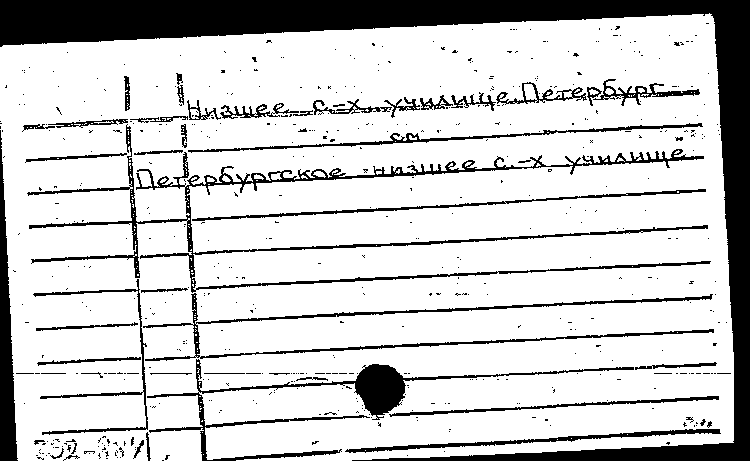 Низшее с.-х. училище. Петербург
см
Петербургское низшее с.-х училище